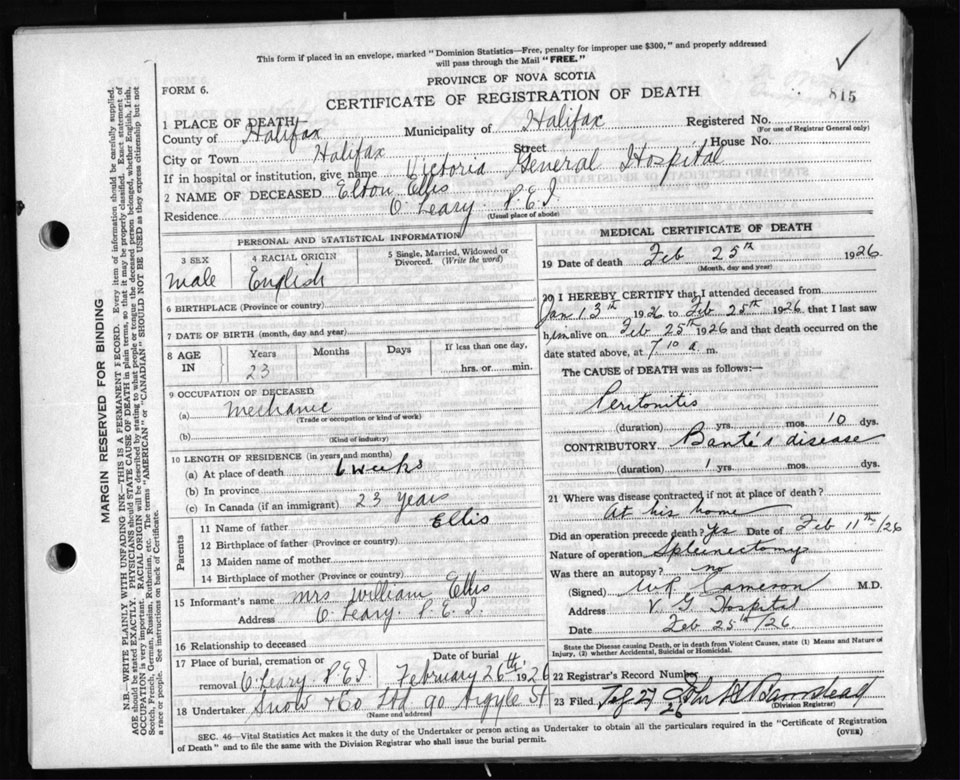 This form if placed in an envelope, marked "Dominion Statistics—Free, penalty for improper use $300," and properly addressed
will pass through the Mail "FREE."
PROVINCE OF NOVA SCOTIA
FORM 6.
CERTIFICATE OF REGISTRATION OF DEATH
815
1 PLACE OF DEATH
County of Halifax Municipality of Halifax Registered No.
(For use of Registrar General only)
City or Town Halifax Street House No.
If in hospital or institution, give name Victoria General Hospital
2 NAME OF DECEASED Elton Ellis
Residence O'Leary P.E.I.
(Usual place of abode)
PERSONAL AND STATISTICAL INFORMATION
3 SEX 4 RACIAL ORIGIN 5 Single, Married, Widowed or
Divorced. (Write the word)
male English
6 BIRTHPLACE (Province or country)
7 DATE OF BIRTH (month, day and year)
8 AGE IN Years Months Days If less than one day,
23 hrs. or min.
9 OCCUPATION OF DECEASED
(a) Mechanic
(Trade or occupation or kind of work)
(b)
(Kind of industry)
10 LENGTH OF RESIDENCE (in years and months)
(a) At place of death 6 weeks
(b) In province
(c) In Canada (if an immigrant) 23 years
Parents
11 Name of father Ellis
12 Birthplace of father (Province or country)
13 Maiden name of mother
14 Birthplace of mother (Province or country)
15 Informant's name Mrs William Ellis
Address O'Leary P.E.I.
16 Relationship to deceased
17 Place of burial, cremation or Date of burial
removal O'Leary P.E.I February 26th, 1926
18 Undertaker Snow & Co Ltd 90 Argyle St
(Name and address)
MEDICAL CERTIFICATE OF DEATH
19 Date of death Feb 25th 1926
(Month, day and year)
20 I HEREBY CERTIFY that I attended deceased from
Jan 13th 1926 to Feb 25th 1926 that I last saw
him alive on Feb 25th 1926 and that death occurred on the
date stated above, at 7 10 a m.
The CAUSE of DEATH was as follows:—
Peritonitis
(duration) yrs. mos. 10 dys.
CONTRIBUTORY Banti's disease
(duration) 1 yrs. mos. dys.
21 Where was disease contracted if not at place of death?
At his home
Did an operation precede death? Yes Date of Feb 11th/26
Nature of operation Spleinectomy
Was there an autopsy? no
(Signed) Cameron M.D.
Address V. G Hospital
Date Feb 25th/26
State the Disease causing Death, or in death from Violent Causes, state (1) Means and Nature of
Injury, (2) whether Accidental, Suicidal or Homicidal.
22 Registrar's Record Number
23 Filed 27 26 John H Barnstead
(Division Registrar)
SEC. 46—Vital Statistics Act makes it the duty of the Undertaker or person acting as Undertaker to obtain all the particulars required in the "Certificate of Registration
of Death" and to file the same with the Division Registrar who shall issue the burial permit.
(OVER)
MARGIN RESERVED FOR BINDING
N.B.—WRITE PLAINLY WITH UNFADING INK—THIS IS A PERMANENT RECORD. Every item of information should be carefully supplied.
AGE should be stated EXACTLY. PHYSICIANS should STATE CAUSE OF DEATH in plain terms, so that it may be properly classified. Exact statement of
OCCUPATION is very important. RACIAL ORIGIN will be described by stating to what people or tongue the deceased person belonged, whether English, Irish,
Scotch, French, German, Russian, Ruthenian, etc. The terms "AMERICAN" or "CANADIAN" SHOULD NOT BE USED as they express citizenship but not
a race or people. See instructions on back of Certificate.